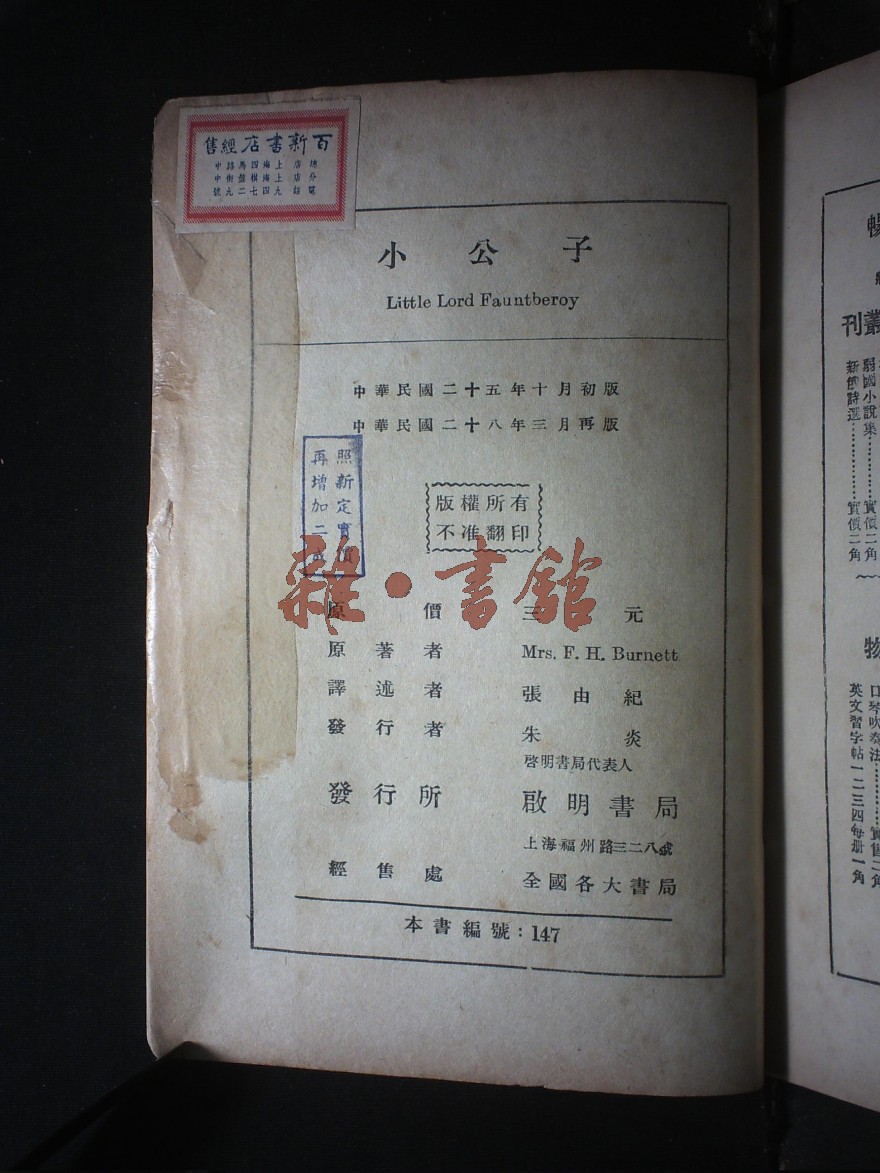 百新書店經售
總店上海四馬路中
分店上海棋盤街中
電話九四七二九號
小公子
Little Lord Fauntberoy
中華民國二十五年十月初版
中華民國二十八年三月再版
照新定實價
再增加二成
版權所有
不准翻印
雜·書館
原價 三元
原著者 Mrs. F. H. Burnett
譯述者 張由紀
發行者 朱炎
啓明書局代表人
發行所 啟明書局
上海福州路三二八號
經售處 全國各大書局
本書編號：147
暢
叢刊
弱國小說集…………實價二角
新俄詩選…………實價二角
物
口琴吹奏法…………實售二角
英文習字帖一二三四每册一角